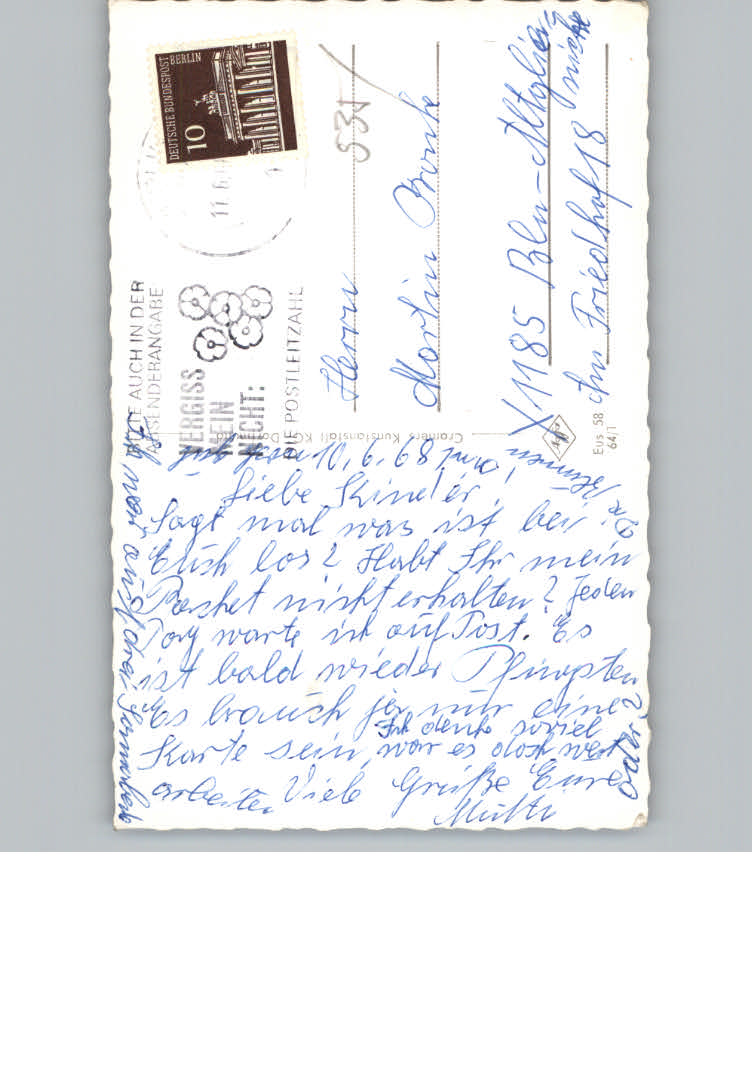 DEUTSCHE BUNDESPOST
BERLIN
10
BITTE AUCH IN DER
ABSENDERANGABE
VERGISS
MEIN
NICHT:
DIE POSTLEITZAHL
535
Herrn
Martin
X 1185 Bln-Altglienicke
Am Friedhof 18
Cramers Kunstanstalt KG
Eus 58
64/1
10. 6. 68
Liebe Kinder!
Sagt mal was ist bei
Euch los? Habt Ihr mein
Packet nicht erhalten? Jeden
Tag warte ich auf Post. Es
ist bald wieder Pfingsten
Es brauch ja nur eine
Karte sein, Ich denke soviel
war es doch wert
oder?
arbeiten Viele Grüße Eure
Mutti
Ich war auch
Die Blumen